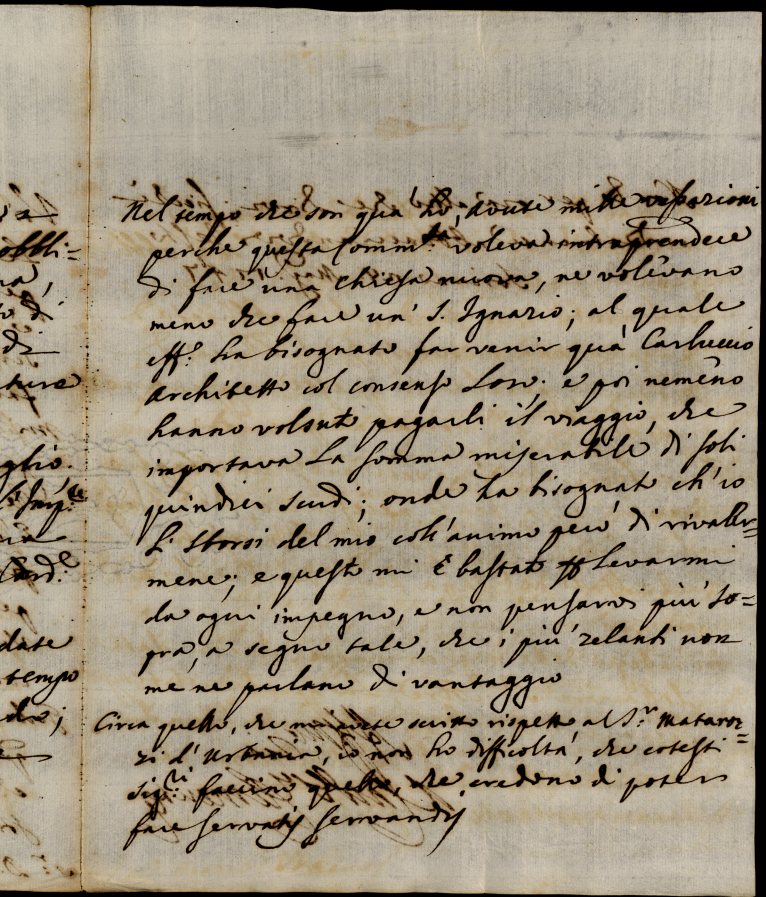 Nel tempo che son quà hò avute mille vessazioni
perche questa Comm.tà voleva intraprendere
di fare una chiesa nuova, ne volevano
meno che fare un' S. Ignazio; al quale
eff.o ha bisognato far venir quà Carluccio
Architetto col consenso Loro. e poi nemeno
hanno volsuto pagarli il viaggio, che
importava La somma miserabile di soli
quindici scudi; onde ha bisognato ch'io
li sborsi del mio coll'animo però di rivaller=
mene; e questo mi è bastato Levarmi
da ogni impegno, e non pensarvi più so=
pra, a segno tale, che i più zelanti non
me ne parlano di vantaggio
Circa quello, che mi avete scritto rispetto al S.r Mataroz=
zi d'Urbania, io non ho difficoltà, che cotesti
Sig.ri faccino quello, che credono di poter
fare servatis servandis
obbli=
na,
di
ture
glio.
Card.e
date
tempo